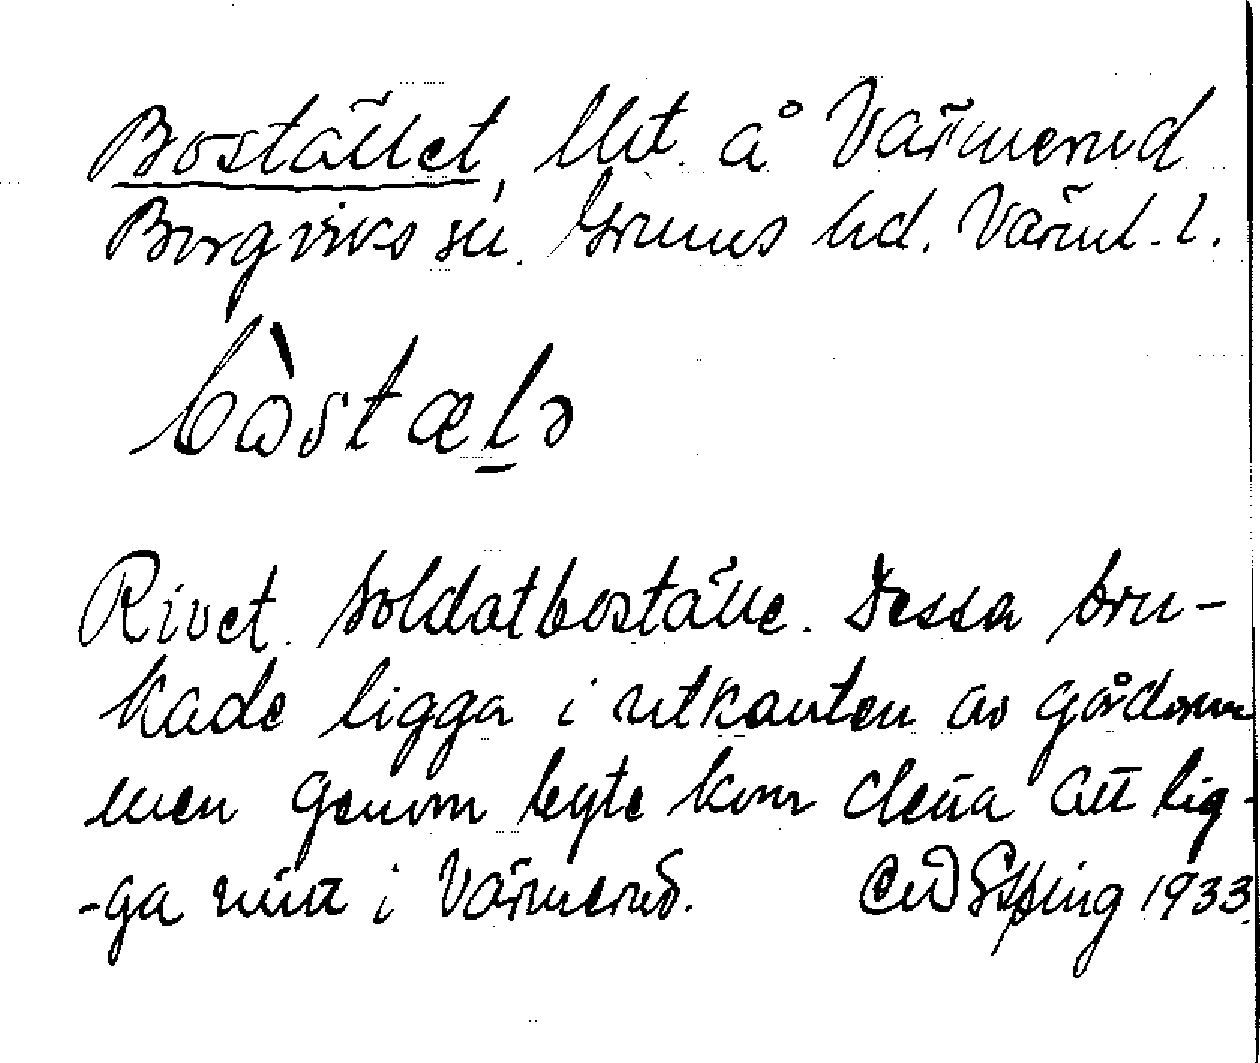 Bostället, lht. å Värmerud
Borgviks sn. Grums hd. Värml. l.
bòstæḷə
Rivet. Soldatboställe. Dessa bru-
kade ligga i utkanten av gården
men genom byte kom detta att lig-
-ga mitt i Värmerud. 1933